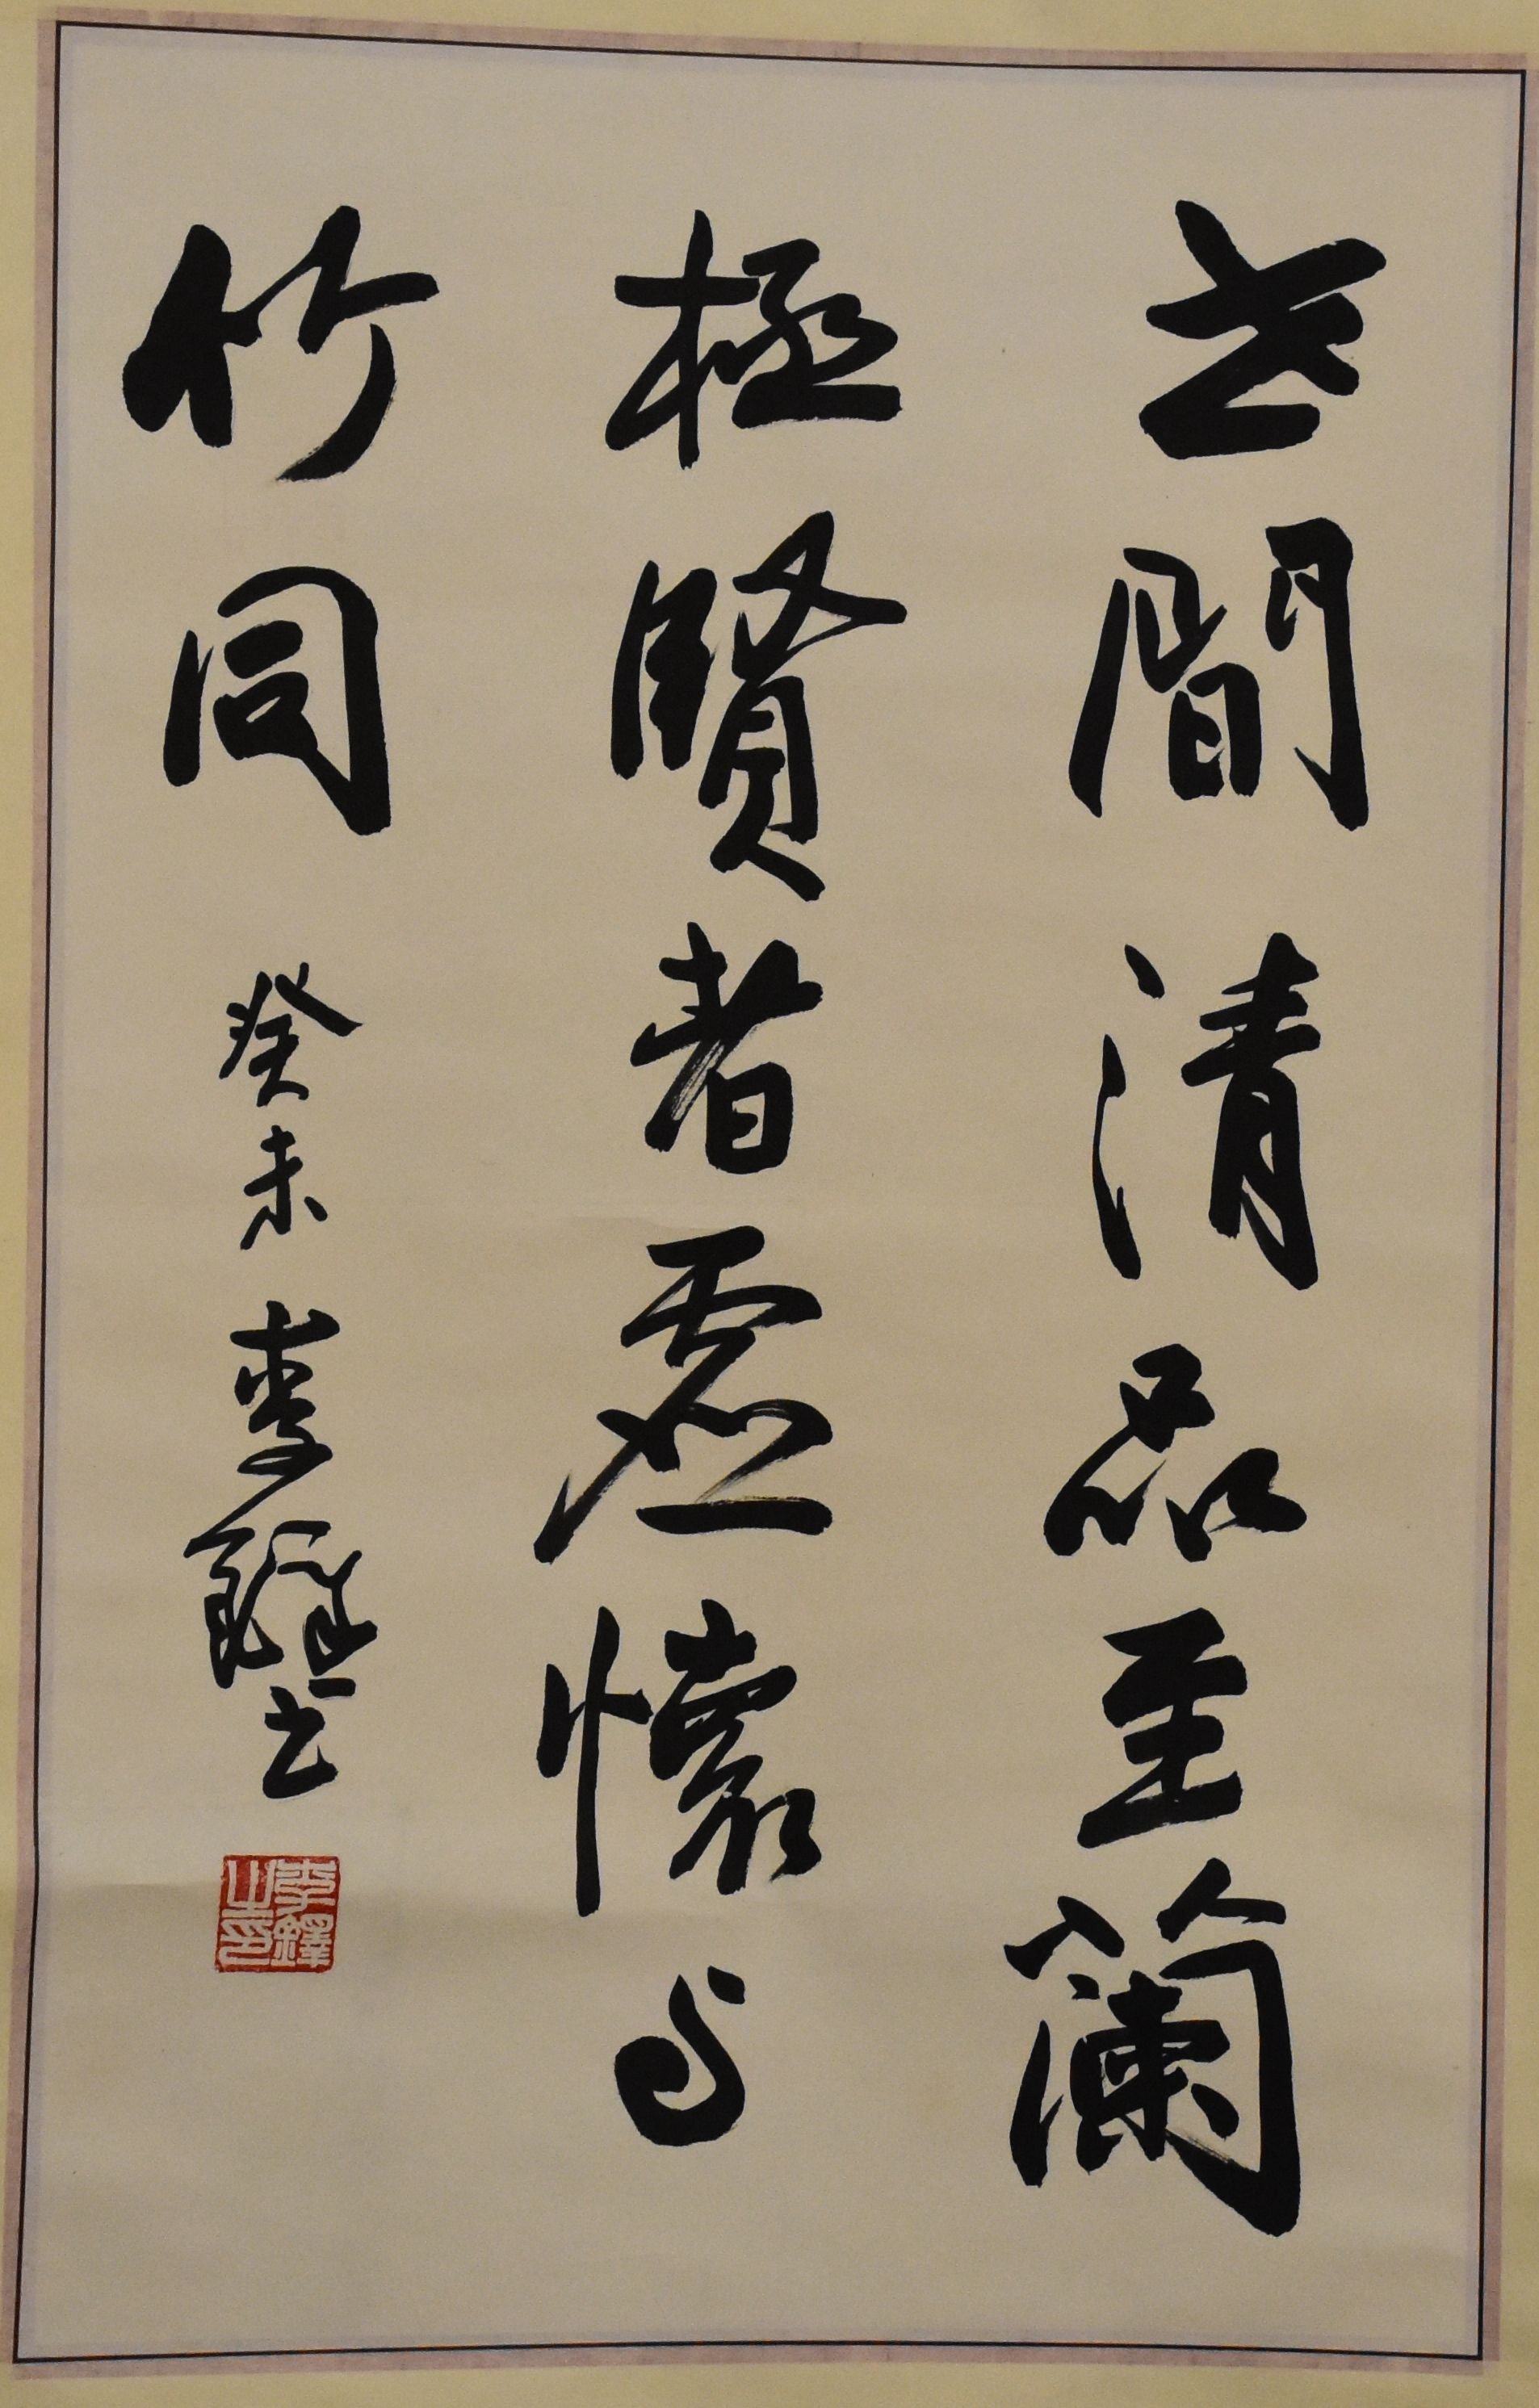 世間清品至蘭
極賢者虛懷与
竹同
癸未李鐸书
李鐸之印